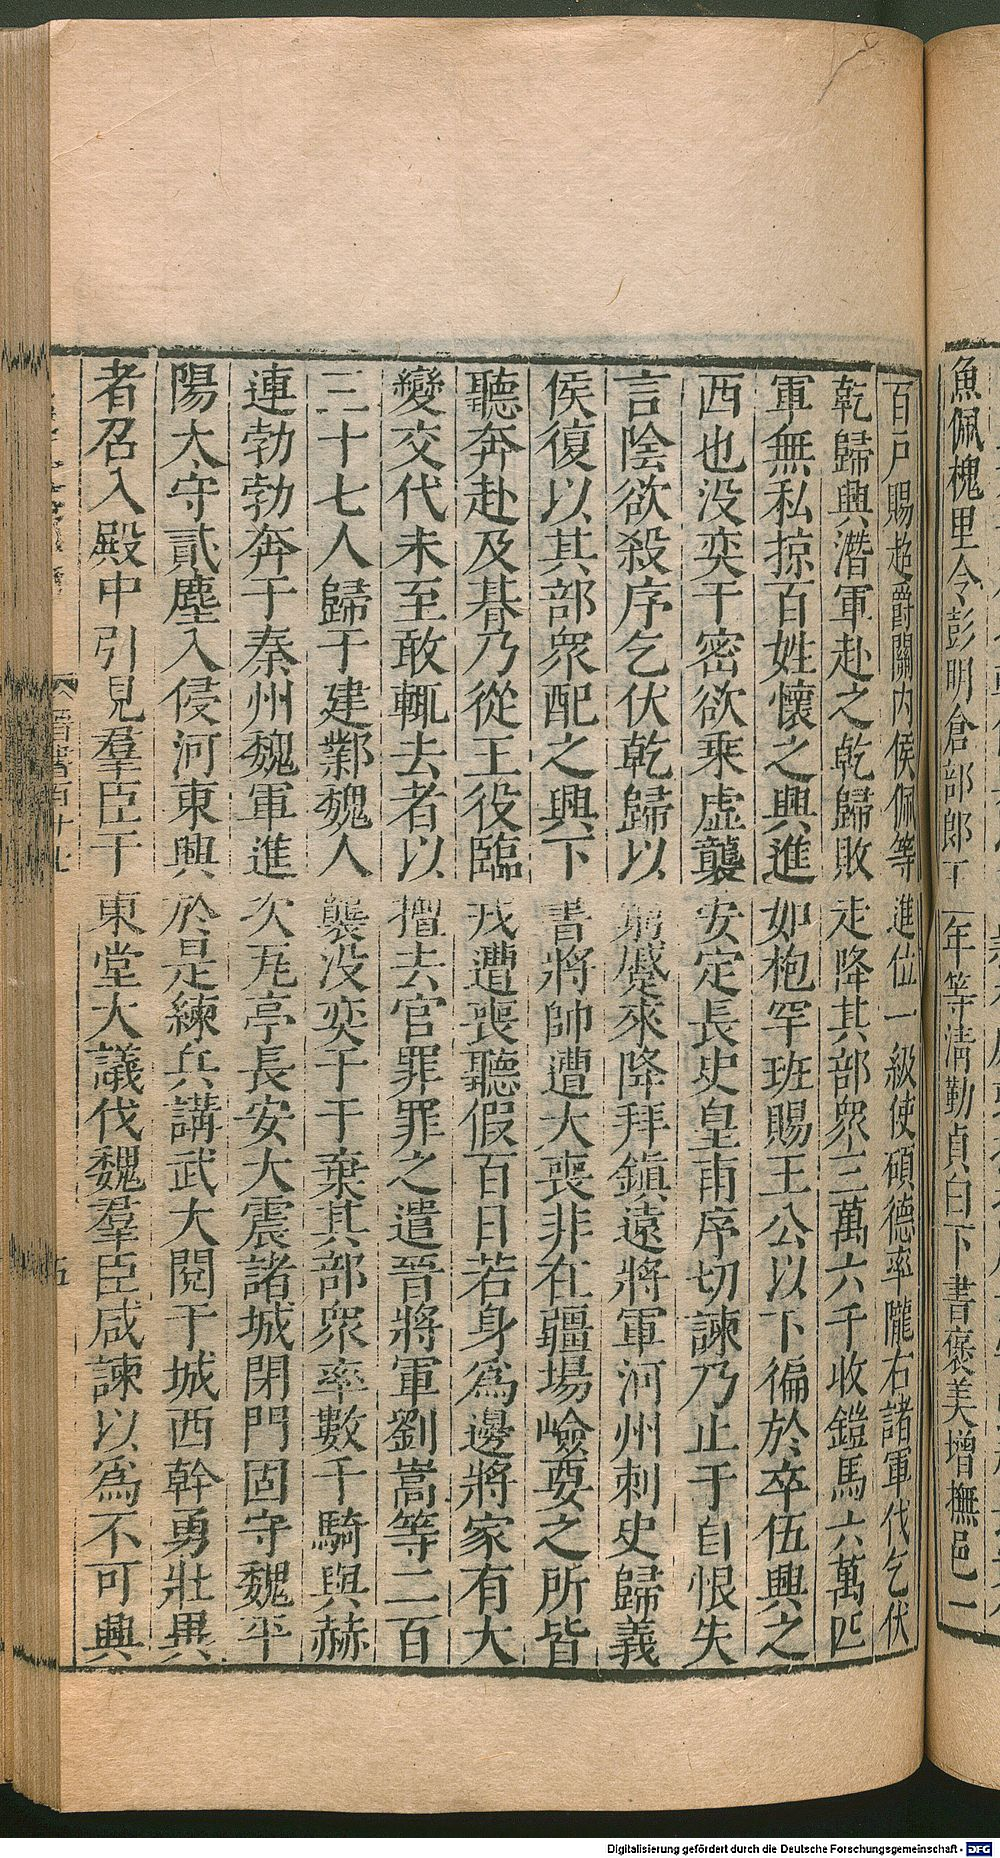 魚佩槐里令彭明倉部郎王年等清勤貞白下書褒美增撫邑一
百戸賜超爵關内侯佩等進位一級使碩德率隴右諸軍伐乞伏
乾歸興潛軍赴之乾歸敗走降其部衆三萬六千收鎧馬六萬匹
軍無私掠百姓懷之興進如枹罕班賜王公以下徧於卒伍興之
西也没奕于密欲乘虛襲安定長史皇甫序切諫乃止于自恨失
言陰欲殺序乞伏乾歸以窮蹙來降拜鎮遠將軍河州刺史歸義
侯復以其部衆配之興下書將帥遭大喪非在疆場嶮要之所皆
聽奔赴及朞乃從王役臨戎遭喪聽假百日若身爲邊將家有大
變交代未至敢輒去者以擅去官罪罪之遣晉將軍劉嵩等二百
三十七人歸于建鄴魏人襲没奕于于棄其部衆率數千騎與赫
連勃勃奔于秦州魏軍進次瓦亭長安大震諸城閉門固守魏平
陽太守貳塵入侵河東興於是練兵講武大閱于城西幹勇壯異
者召入殿中引見羣臣于東堂大議伐魏羣臣咸諫以爲不可興
晉書百十七
五
Digitalisierung gefördert durch die Deutsche Forschungsgemeinschaft - DFG